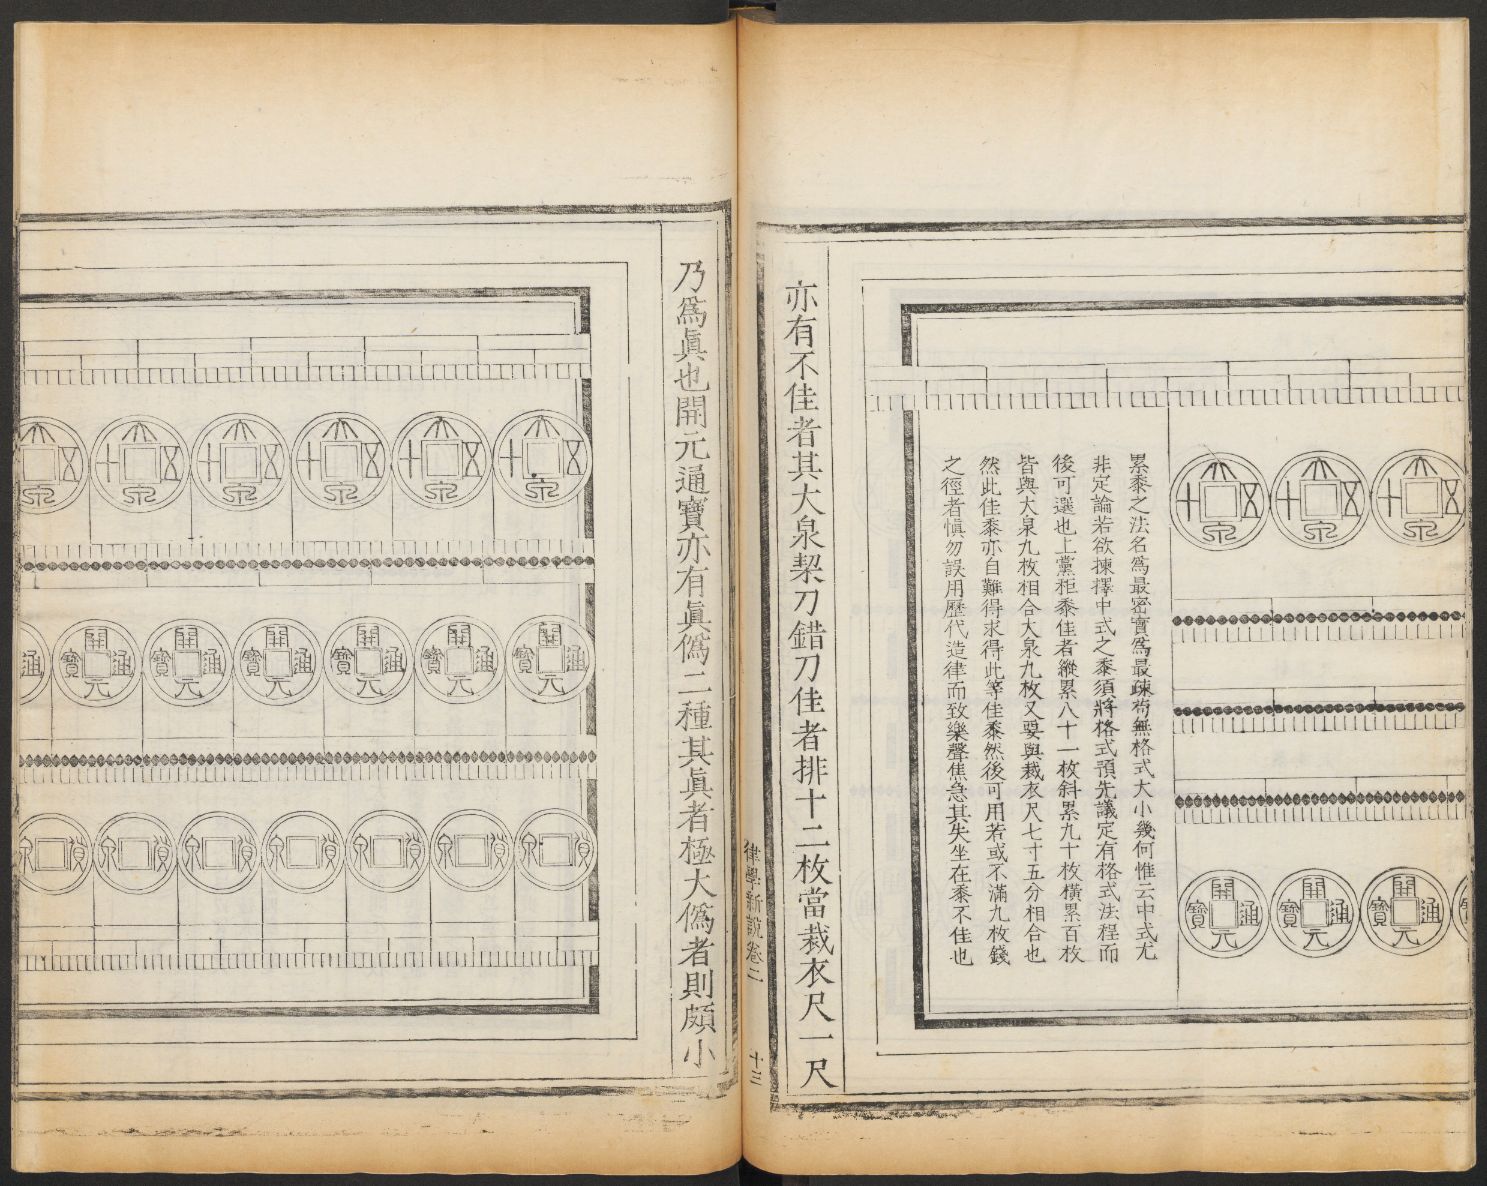 大泉五十
大泉五十
大泉五十
開元通寶
開元通寶
開元通寶
累黍之法名爲最密實爲最疎苟無格式大小幾何惟云中式尤
非定論若欲揀擇中式之黍須將格式預先議定有格式法程而
後可選也上黨秬黍佳者縱累八十一枚斜累九十枚橫累百枚
皆與大泉九枚相合大泉九枚又要與裁衣尺七寸五分相合也
然此佳黍亦自難得求得此等佳黍然後可用若或不滿九枚錢
之徑者愼勿誤用歷代造律而致樂聲焦急其失坐在黍不佳也
亦有不佳者其大泉契刀錯刀佳者排十二枚當裁衣尺一尺
律學新說卷二
十三
乃爲眞也開元通寶亦有眞僞二種其眞者極大僞者則頗小
大泉五十
大泉五十
大泉五十
大泉五十
大泉五十
大泉
開元通寶
開元通寶
開元通寶
開元通寶
開元通寶
開元通寶
通
貨泉
貨泉
貨泉
貨泉
貨泉
貨泉
貨泉